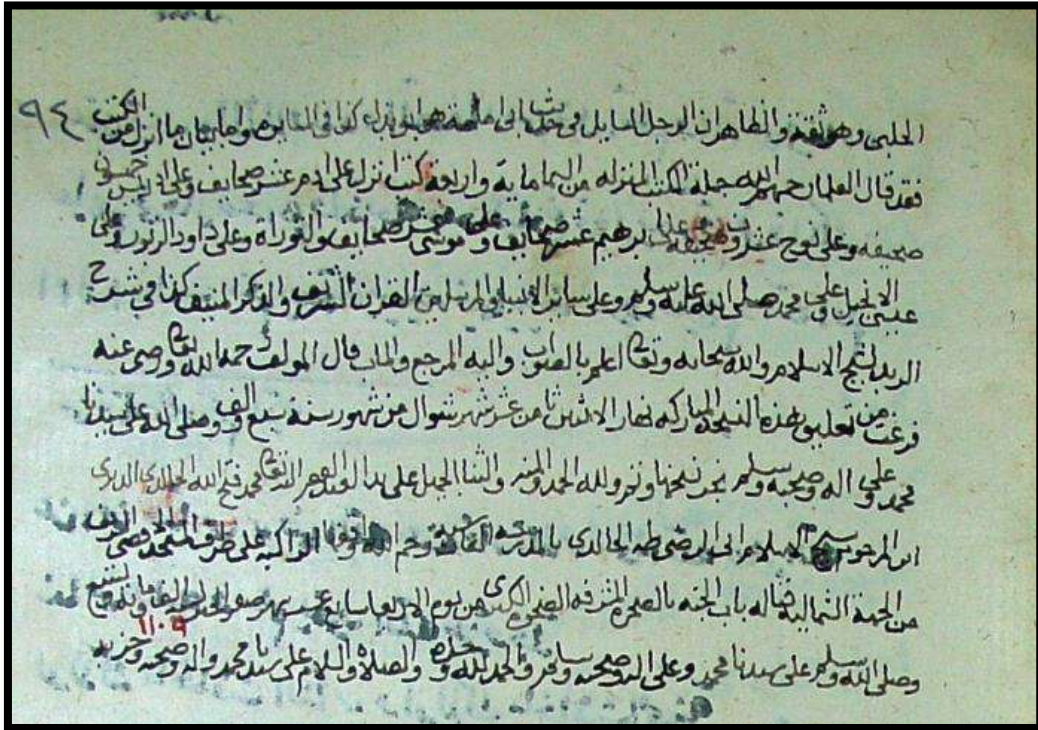 ٩٤
الحلبى وهو ثقة والظاهر ان الرجل السايل فى حديث ابى امامة هو ابى ذر كذا فى واما بيان ما انزل من الكتب
فقد قال العلما رحمهم الله جملة الكتب المنزله من السما ماية واربعة كتب انزل على ادم عشر صحايف وعلى ادريس خمسون
صحيفه وعلى نوح عشرون صحيفه وعلى ابرهيم عشر صحايف وعلى موسى عشر صحايف والتوراة وعلى داود الزبور وعلى
عيسى الانجيل وعلى محمد صلى الله عليه وسلم وعلى ساير الانبيا والمرسلين القران الشريف والذكر المنيف كذا فى شرح
الزبد لشيخ الاسلام والله سبحانه وتعالى اعلم بالصواب واليه المرجع والماب قال المولف رحمه الله تعالى ورضى عنه
فرغت من تعليق هذه النسخه المباركه نهار الاثنين ثامن عشر شهر شوال من شهور سنة سبع والف وصلى الله على سيدنا
محمد وعلى اله وصحبه وسلم نجز نسخها وتم ولله الحمد والمنه والثنا الجميل على يد الفقير الله تعالى محمد فتح الله الخالدى الديرى
ابن المرحوم شيخ الاسلام ابى الرضى طه الخالدى بالمدرسه رحم الله واقفها الراكبه على طرف المسجد الاقصى
من الجهة الشماليه قباله باب الجنه بالصخره المشرفه الضحوة الكبرى من يوم الاربعا سابع عشر شهر صفر الخير سنه الف وماية وتسع
١١٠٩
وصلى الله وسلم على سيدنا محمد وعلى اله وصحبه وسلم والحمد لله وحده والصلاة والسلام على سيدنا محمد واله وصحبه وحزبه